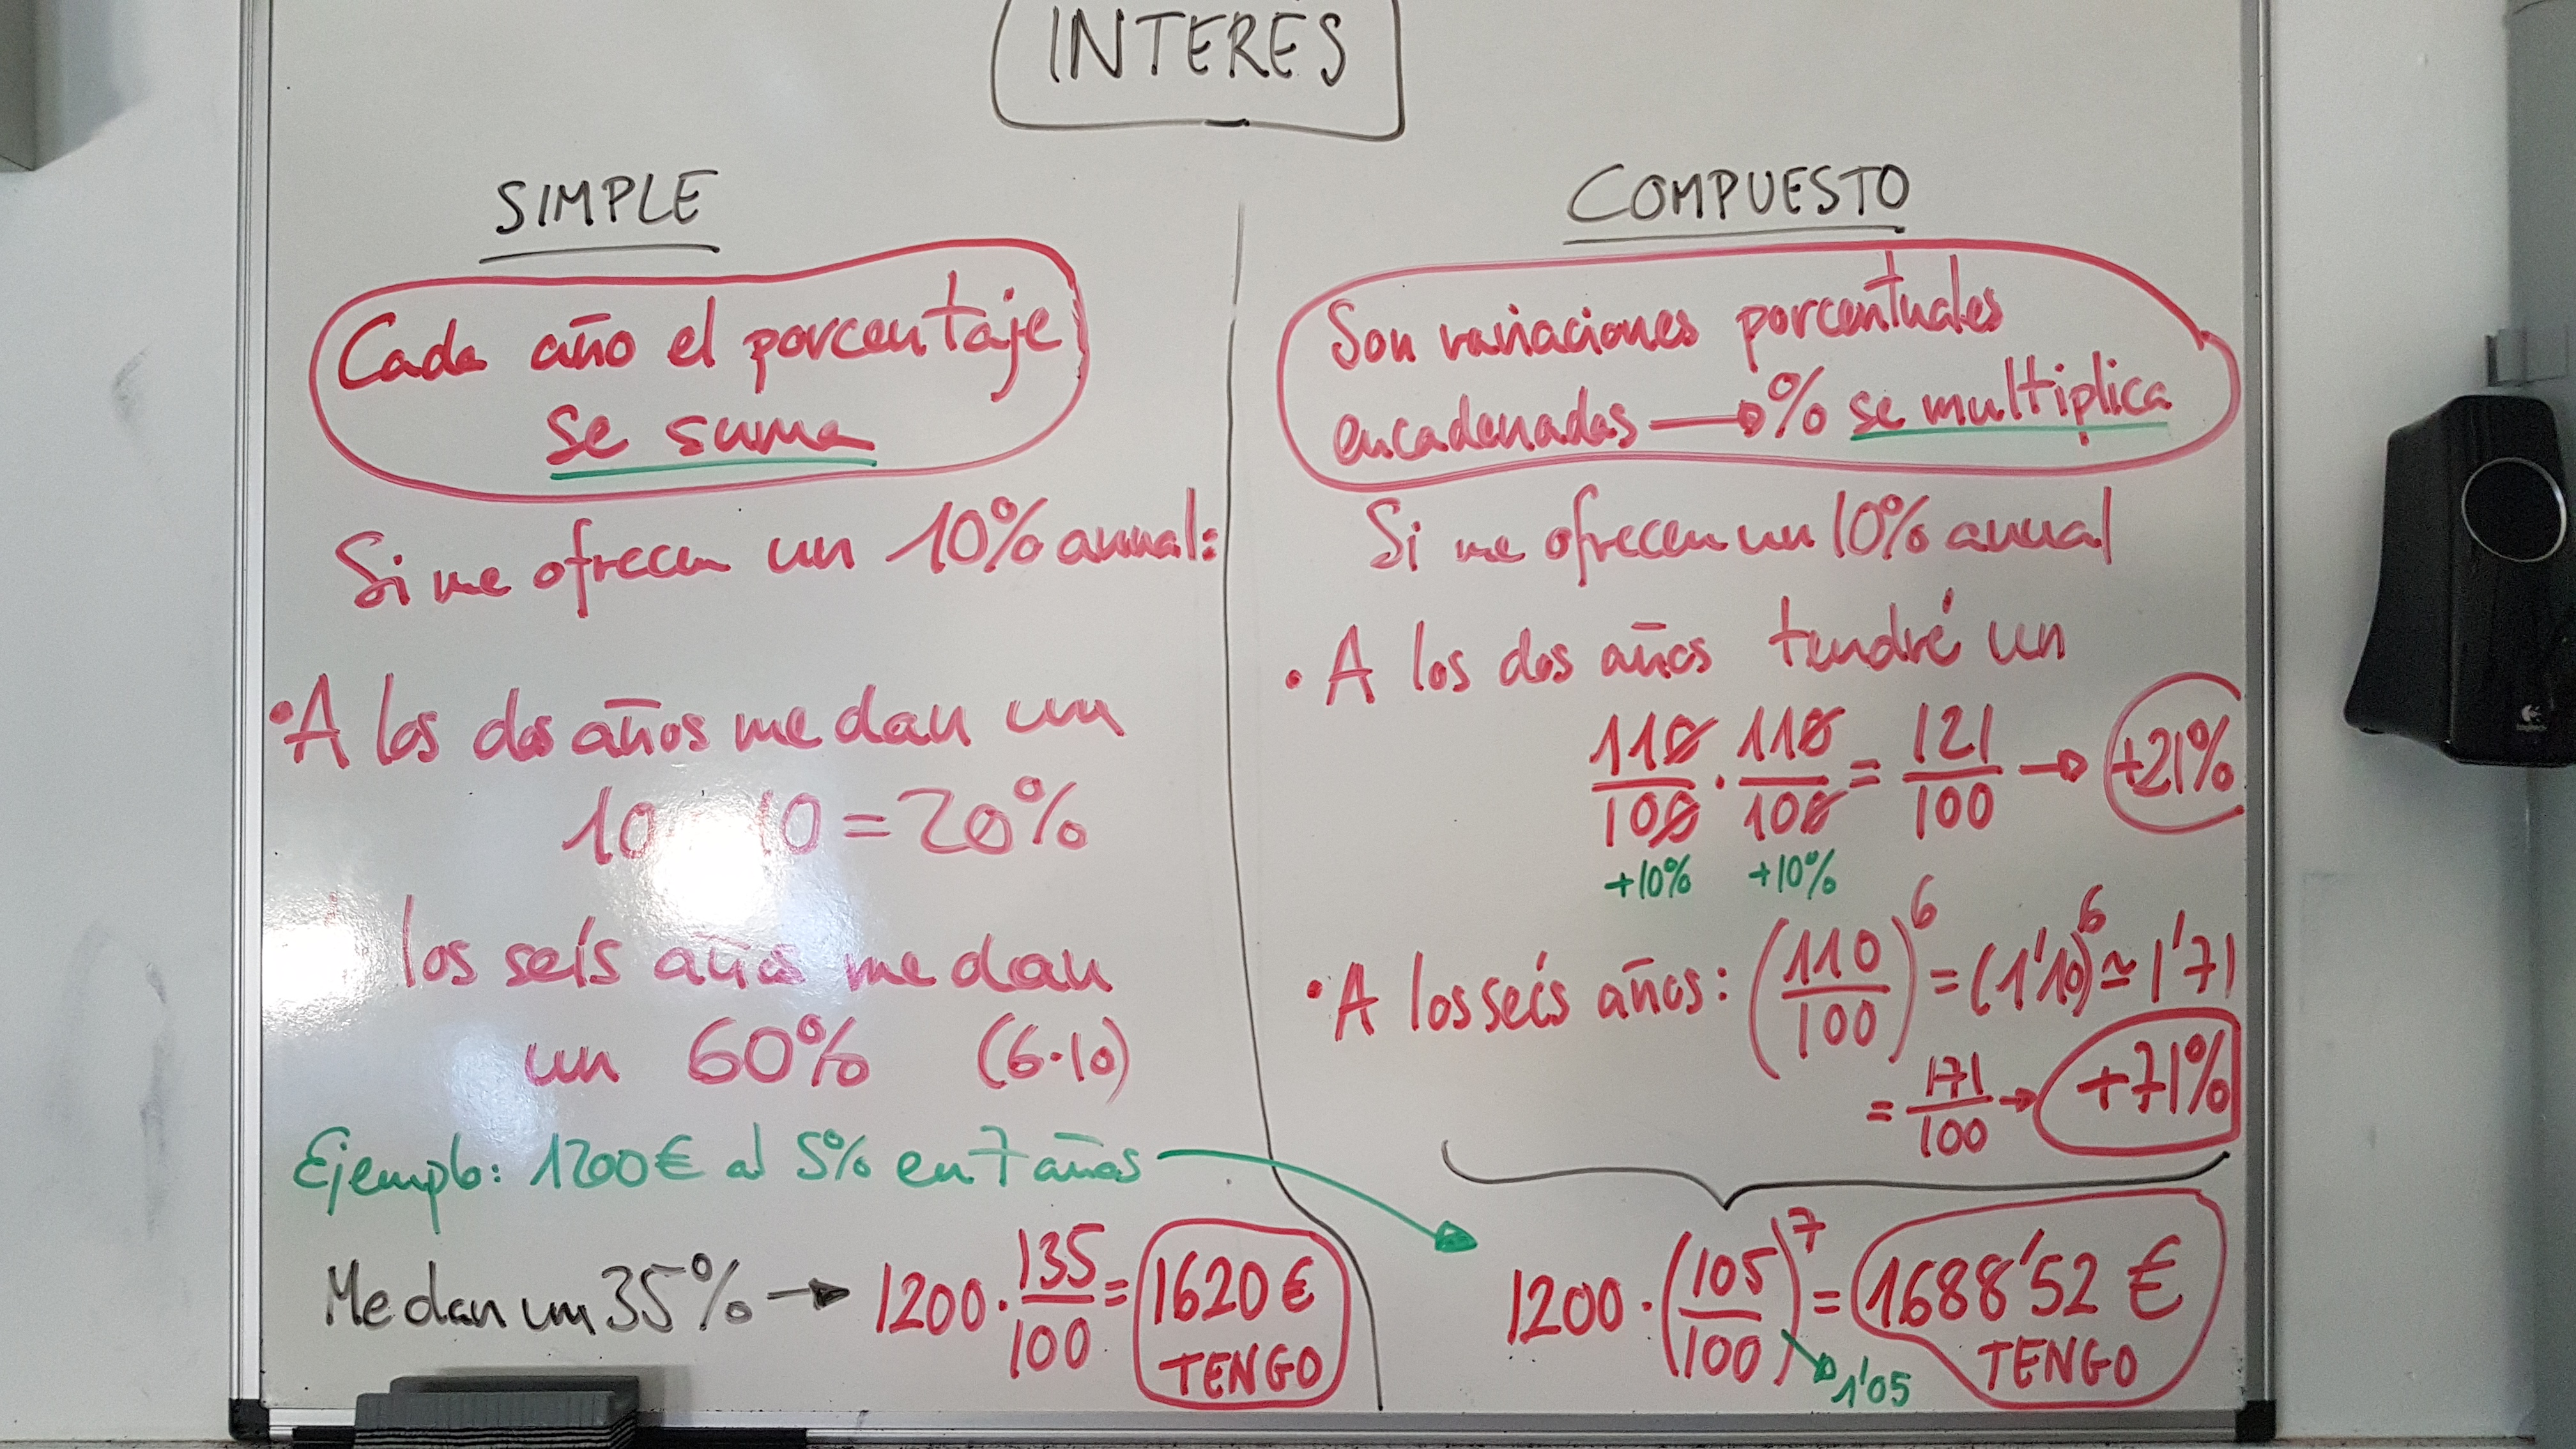 INTERÉS
SIMPLE
Cada año el porcentaje
se suma
Si me ofrecen un 10% anual:
• A los dos años me dan un
10 10 = 20%
los seís años me dan
un 60% (6·10)
Ejemplo: 1200€ al 5% en 7 años
Me dan un 35% → 1200 · 135/100 = 1620 €
TENGO
COMPUESTO
Son variaciones porcentuales
encadenadas → % se multiplica
Si me ofrecen un 10% anual
• A los dos años tendré un
110/100 · 110/100 = 121/100 → +21%
+10% +10%
• A los seís años: (110/100)^6 = (1'10)^6 ≃ 1'71
= 171/100 → +71%
1200 · (105/100)^7 = 1688'52 €
1'05
TENGO